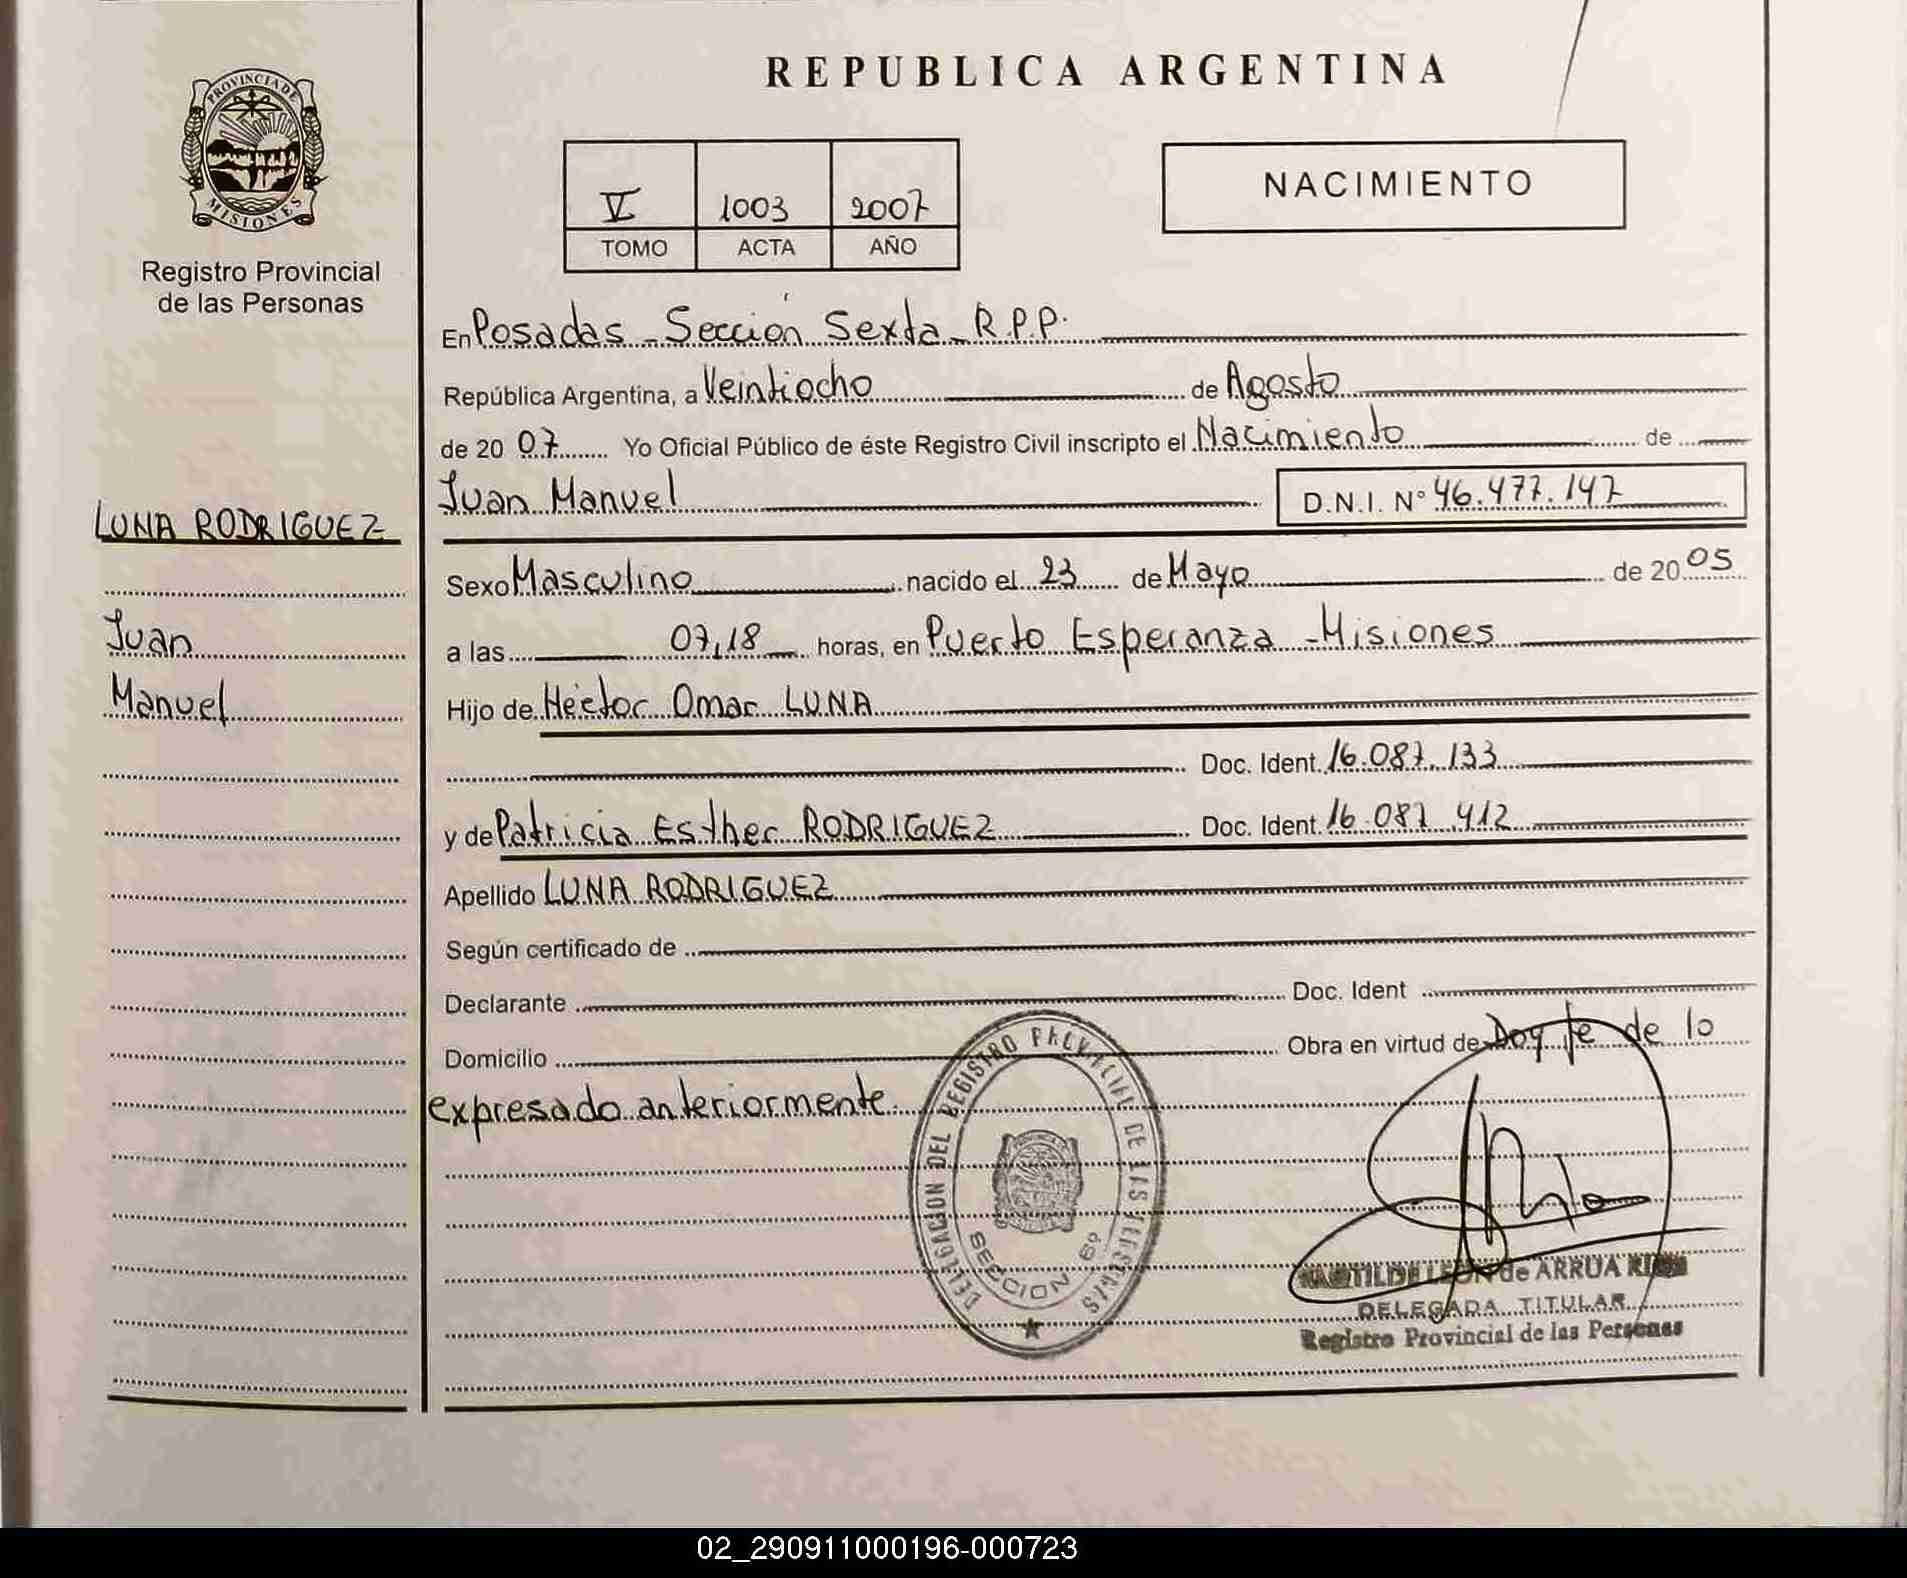 REPUBLICA ARGENTINA
PROVINCIA DE MISIONES
Registro Provincial
de las Personas
V 1003 2007
TOMO ACTA AÑO
NACIMIENTO
En Posadas - Sección Sexta - R.P.P.
República Argentina, a Veintiocho de Agosto
de 20 07 Yo Oficial Público de éste Registro Civil inscripto el Nacimiento de
Juan Manuel D.N.I. Nº 46.477.147
LUNA RODRIGUEZ
Juan
Manuel
Sexo Masculino nacido el 23 de Mayo de 20 05
a las 07,18 horas, en Puerto Esperanza - Misiones
Hijo de Héctor Omar LUNA
Doc. Ident. 16.087.133
y de Patricia Esther RODRIGUEZ Doc. Ident. 16.087.412
Apellido LUNA RODRIGUEZ
Según certificado de
Declarante Doc. Ident
Domicilio Obra en virtud de Doy fe de lo
expresado anteriormente.
DELEGACION DEL REGISTRO PROVINCIAL DE LAS PERSONAS
SECCION 6º
de ARRUA
DELEGADA TITULAR
Registro Provincial de las Personas
02_290911000196-000723